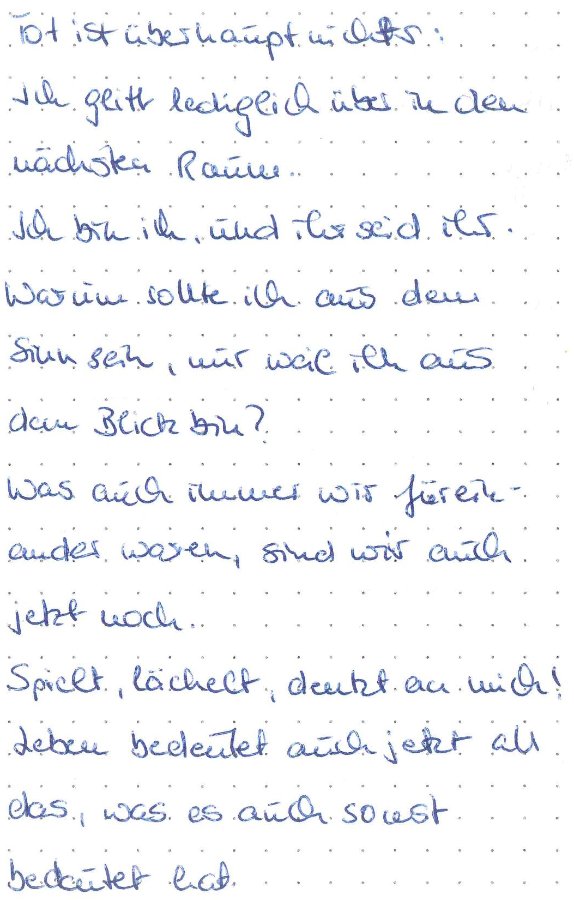 Tot ist überhaupt nichts:
Ich glitt lediglich über in den
nächsten Raum.
Ich bin ich, und ihr seid ihr.
Warum sollte ich aus dem
Sinn sein, nur weil ich aus
dem Blick bin?
Was auch immer wir fürein-
ander waren, sind wir auch
jetzt noch.
Spielt, lächelt, denkt an mich!
Leben bedeutet auch jetzt all
das, was es auch sonst
bedeutet hat.